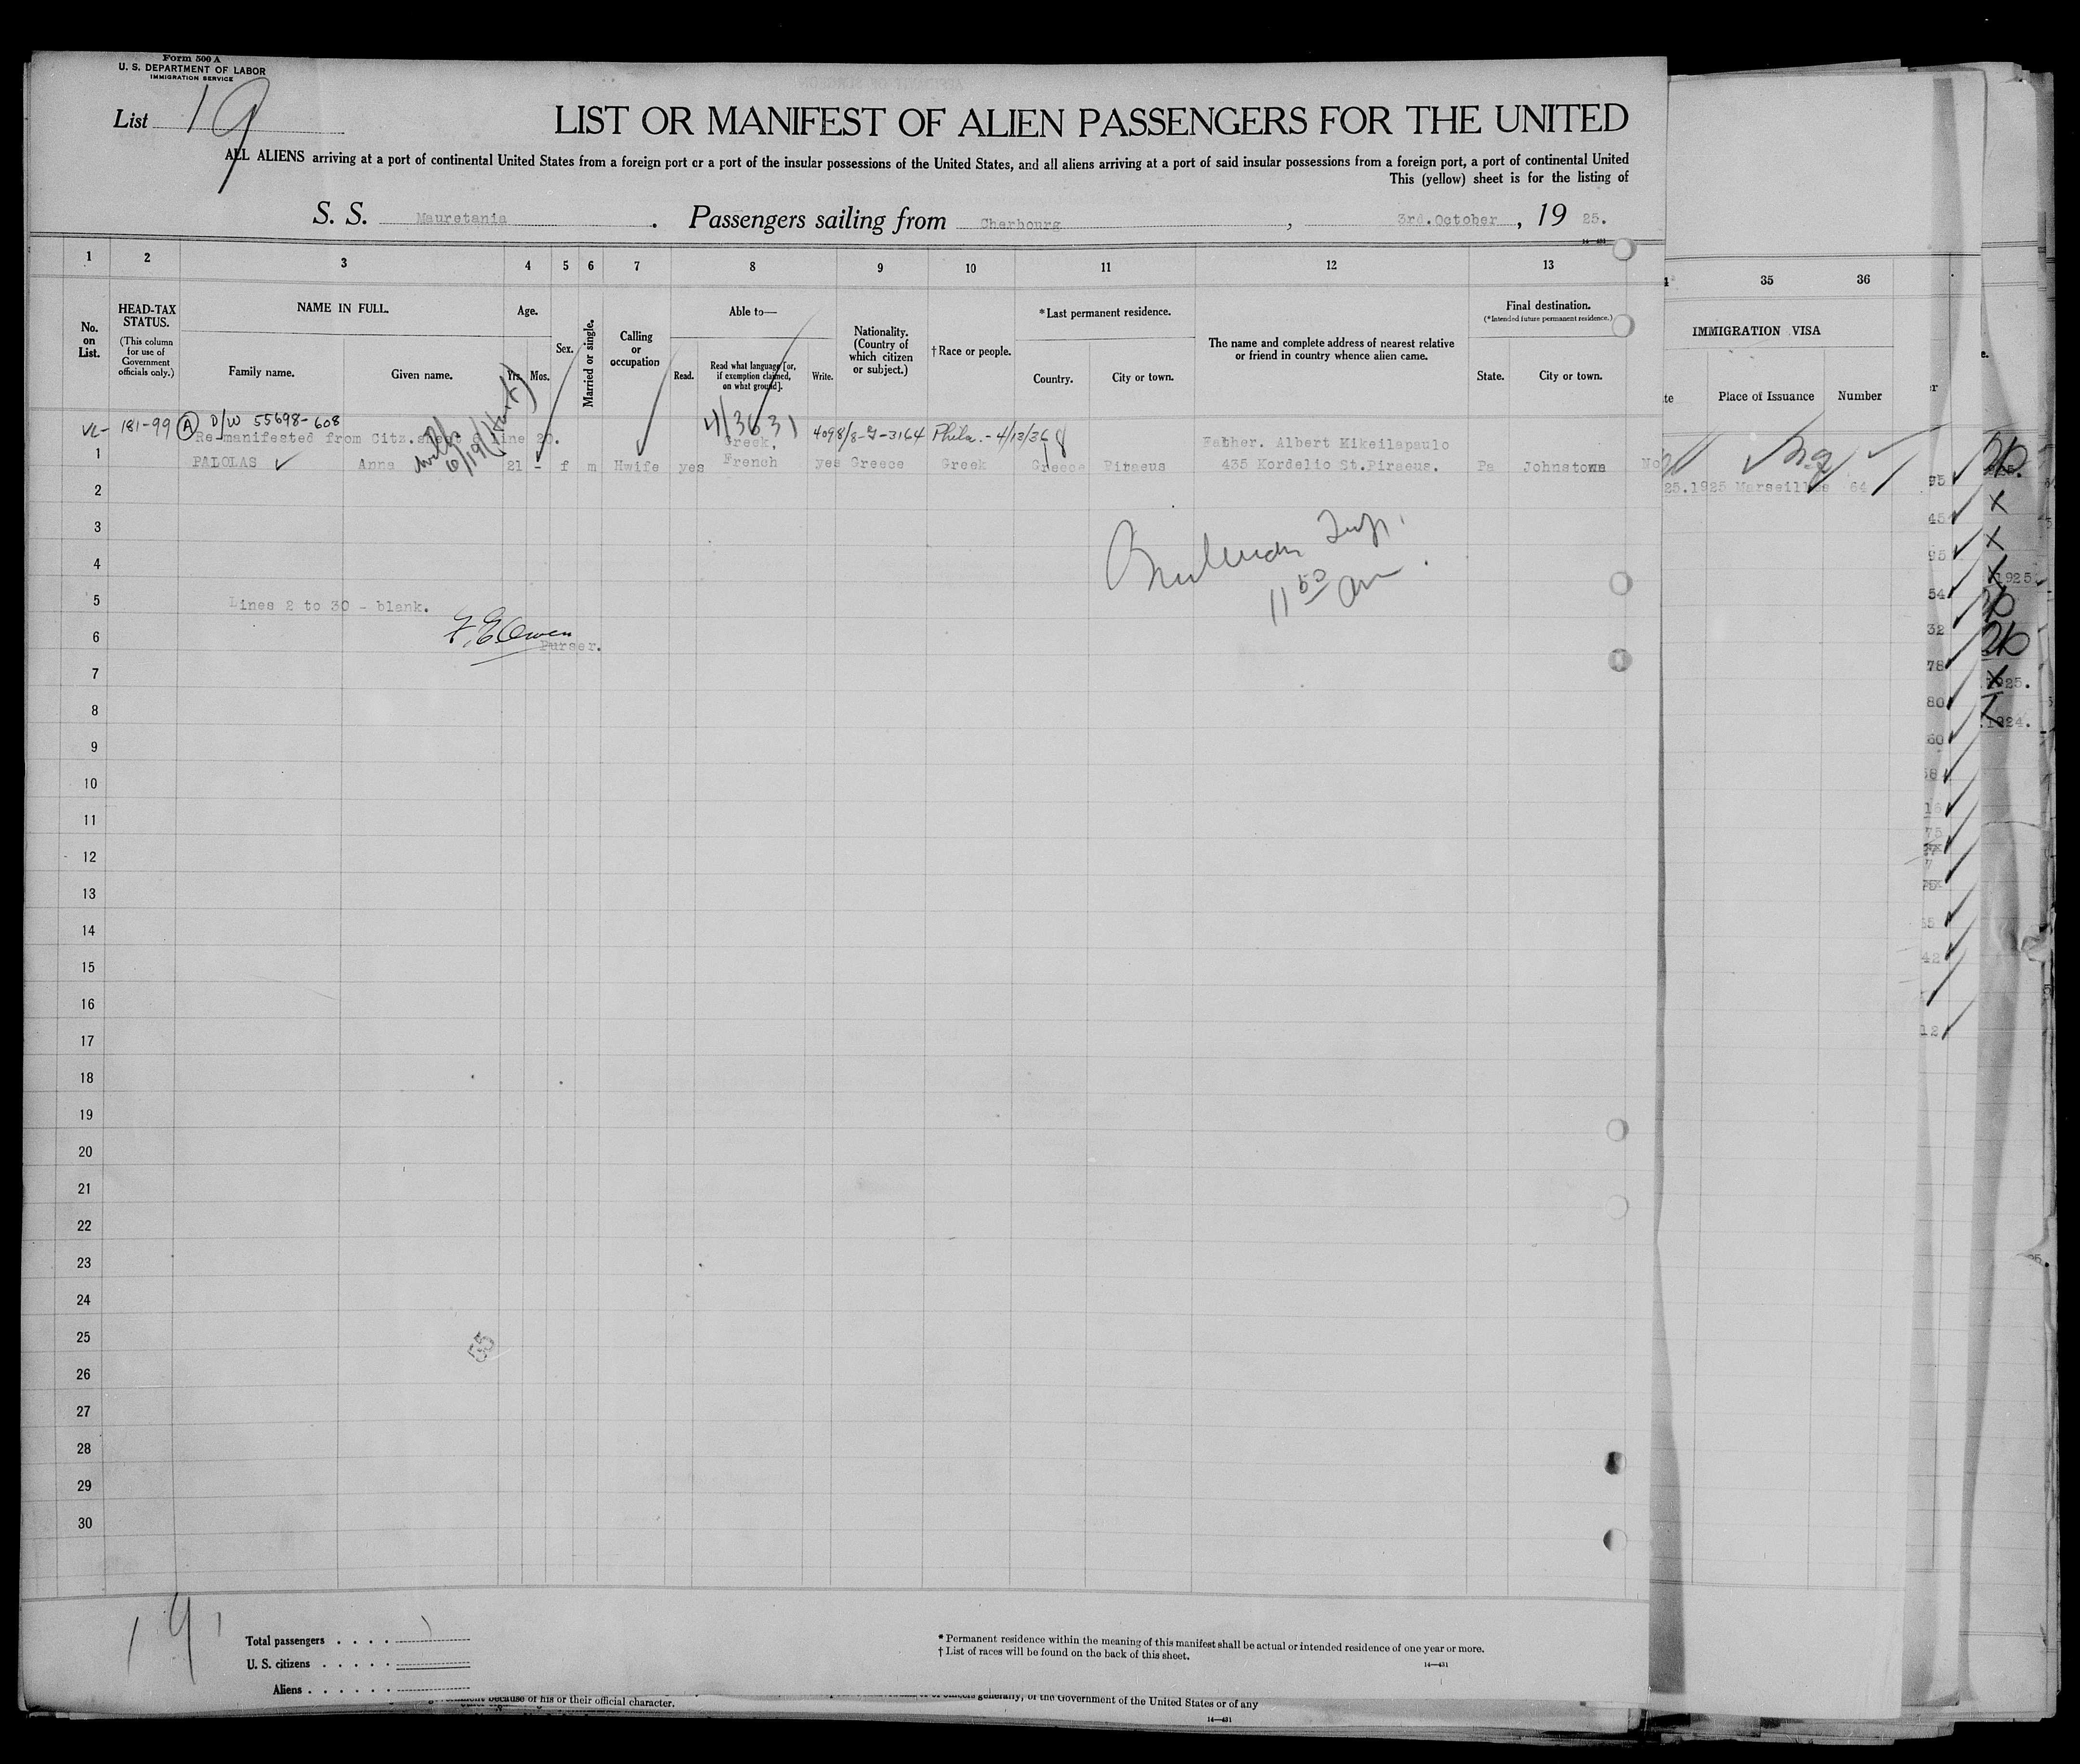 Form 500 A
U. S. DEPARTMENT OF LABOR
IMMIGRATION SERVICE
List 19
LIST OR MANIFEST OF ALIEN PASSENGERS FOR THE UNITED
ALL ALIENS arriving at a port of continental United States from a foreign port or a port of the insular possessions of the United States, and all aliens arriving at a port of said insular possessions from a foreign port, a port of continental United
This (yellow) sheet is for the listing of
S. S. Mauretania. Passengers sailing from Cherbourg, 3rd.October, 19 25.
14—431
1 2 3 4 5 6 7 8 9 10 11 12 13 35 36
No. on List.
HEAD-TAX STATUS.
(This column for use of Government officials only.)
NAME IN FULL.
Family name. Given name.
Age.
Yrs. Mos.
Sex.
Married or single.
Calling or occupation
Able to—
Read. Read what language [or, if exemption claimed, on what ground]. Write.
Nationality. (Country of which citizen or subject.)
† Race or people.
* Last permanent residence.
Country. City or town.
The name and complete address of nearest relative or friend in country whence alien came.
Final destination.
(*Intended future permanent residence.)
State. City or town.
IMMIGRATION VISA
Place of Issuance Number
VL- 181-99 (A) D/W 55698-608 4098/8-G-3164 Phila. - 4/13/36
Re-manifested from Citz.sheet 6 line 20. Greek. Father. Albert Mikeilapaulo
1 PALOLAS Anna 21 - f m Hwife yes French yes Greece Greek Greece Piraeus 435 Kordelio St.Piraeus. Pa Johnstown No
25.1925 Marseilles 64
2
3
4
11 50 am
5
Lines 2 to 30 - blank.
F. E. Owen
6
Purser.
7
8
9
10
11
12
13
14
15
16
17
18
19
20
21
22
23
24
25
26
27
28
29
30
19
Total passengers . . . . 1
U. S. citizens . . . . .
Aliens . . . . . .
* Permanent residence within the meaning of this manifest shall be actual or intended residence of one year or more.
† List of races will be found on the back of this sheet.
14—431
because of his or their official character.
of the Government of the United States or of any
14—431